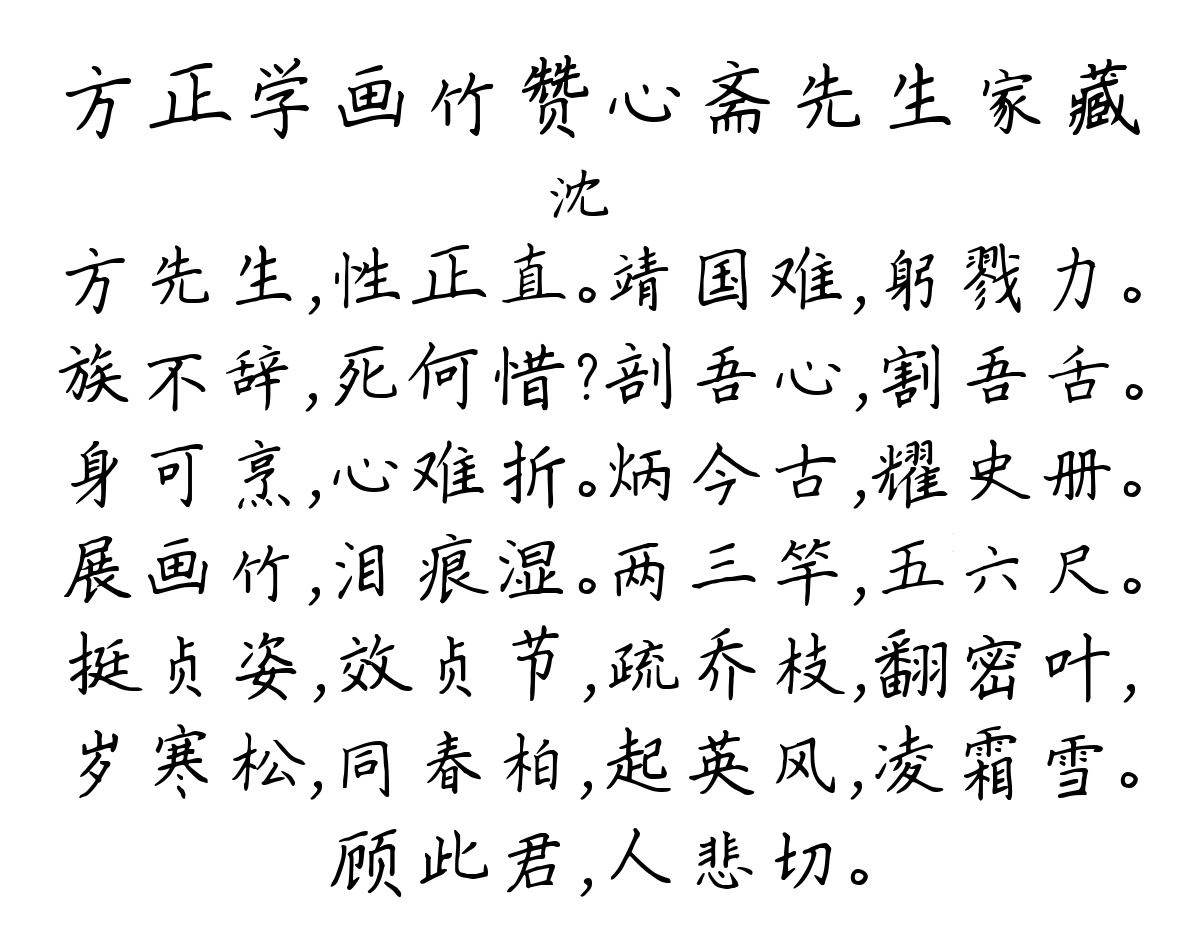 方正学画竹赞心斋先生家藏
沈
方先生,性正直。靖国难,躬戮力。
族不辞,死何惜?剖吾心,割吾舌。
身可烹,心难折。炳今古,耀史册。
展画竹,泪痕湿。两三竿,五六尺。
挺贞姿,效贞节,疏乔枝,翻密叶,
岁寒松,同春柏,起英风,凌霜雪。
顾此君,人悲切。